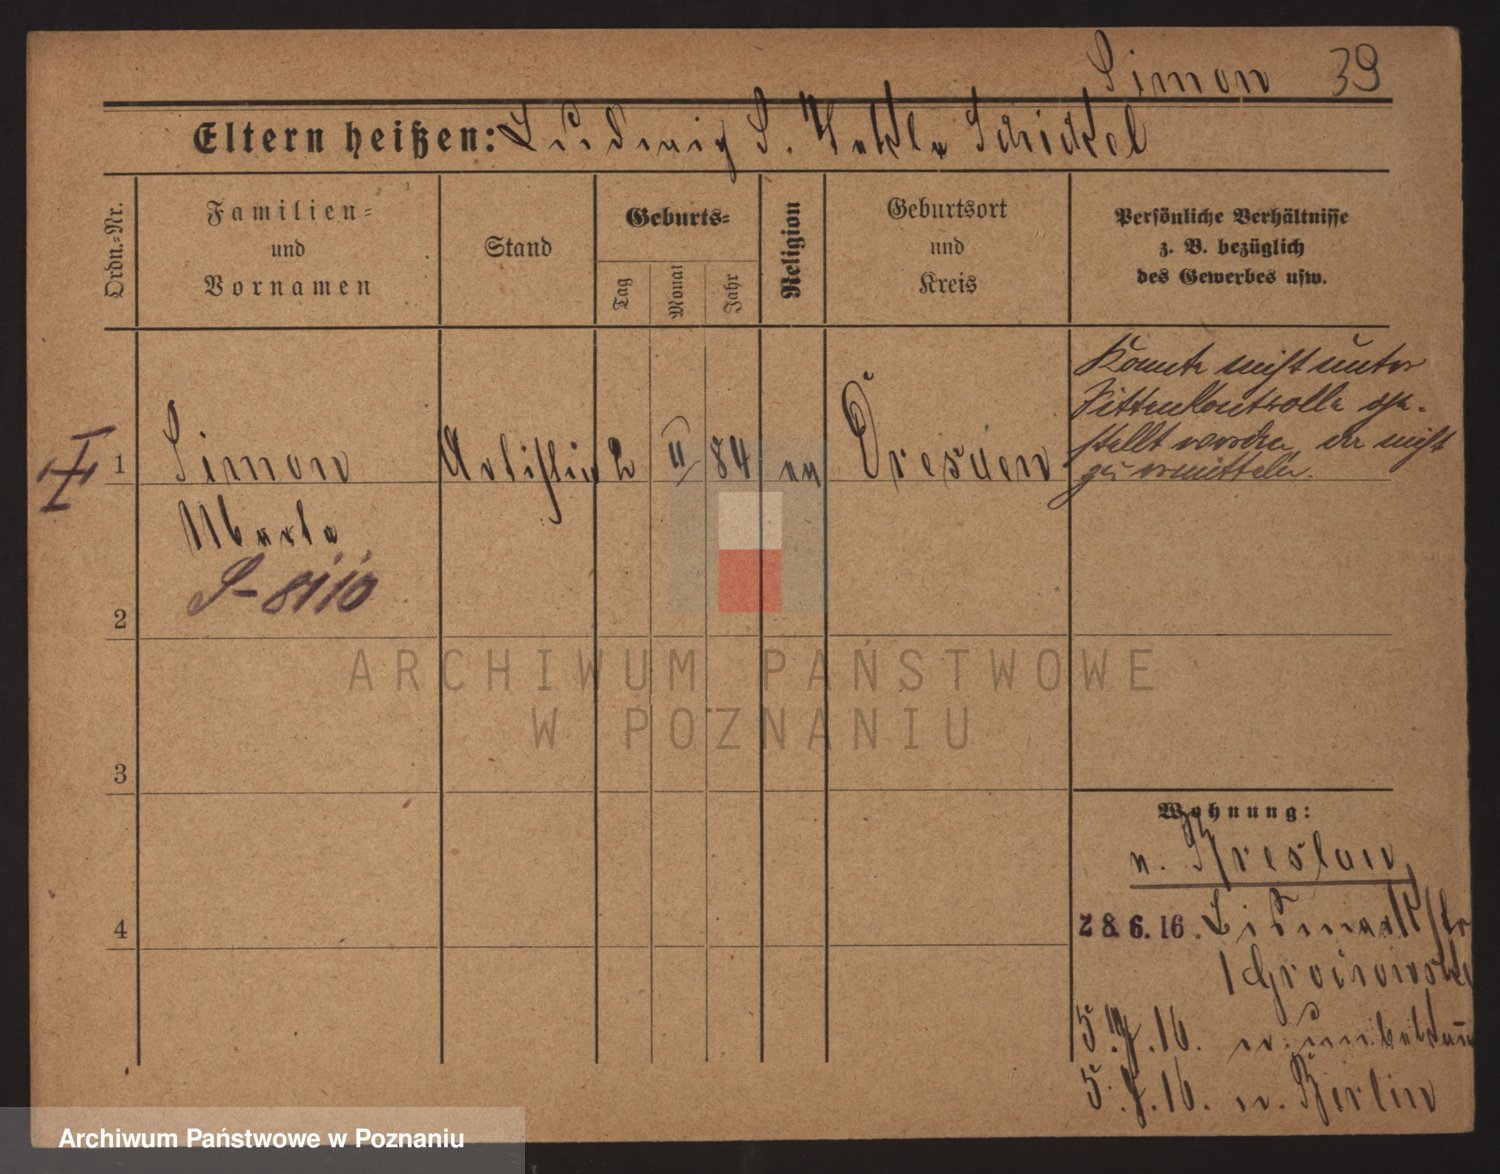 Simon 39
Eltern heißen: Ludwig S. Schickel
Ordn.-Nr.
Familien-
und
Vornamen
Stand
Geburts-
Tag
Monat
Jahr
Religion
Geburtsort
und
Kreis
Persönliche Verhältnisse
z. B. bezüglich
des Gewerbes usw.
1 Simon Artistin 2 II 84 ev Dresden
Marta
S-8110
Konnte nicht unter
Sittenkontrolle ge-
stellt werden, da nicht
zu ermitteln.
2
3
4
Wohnung:
n. Breslau
28.6.16. Bismarckstr
1
5. .16. n. unbekannt
5. .16. n. Berlin
ARCHIWUM PAŃSTWOWE
W POZNANIU
Archiwum Państwowe w Poznaniu